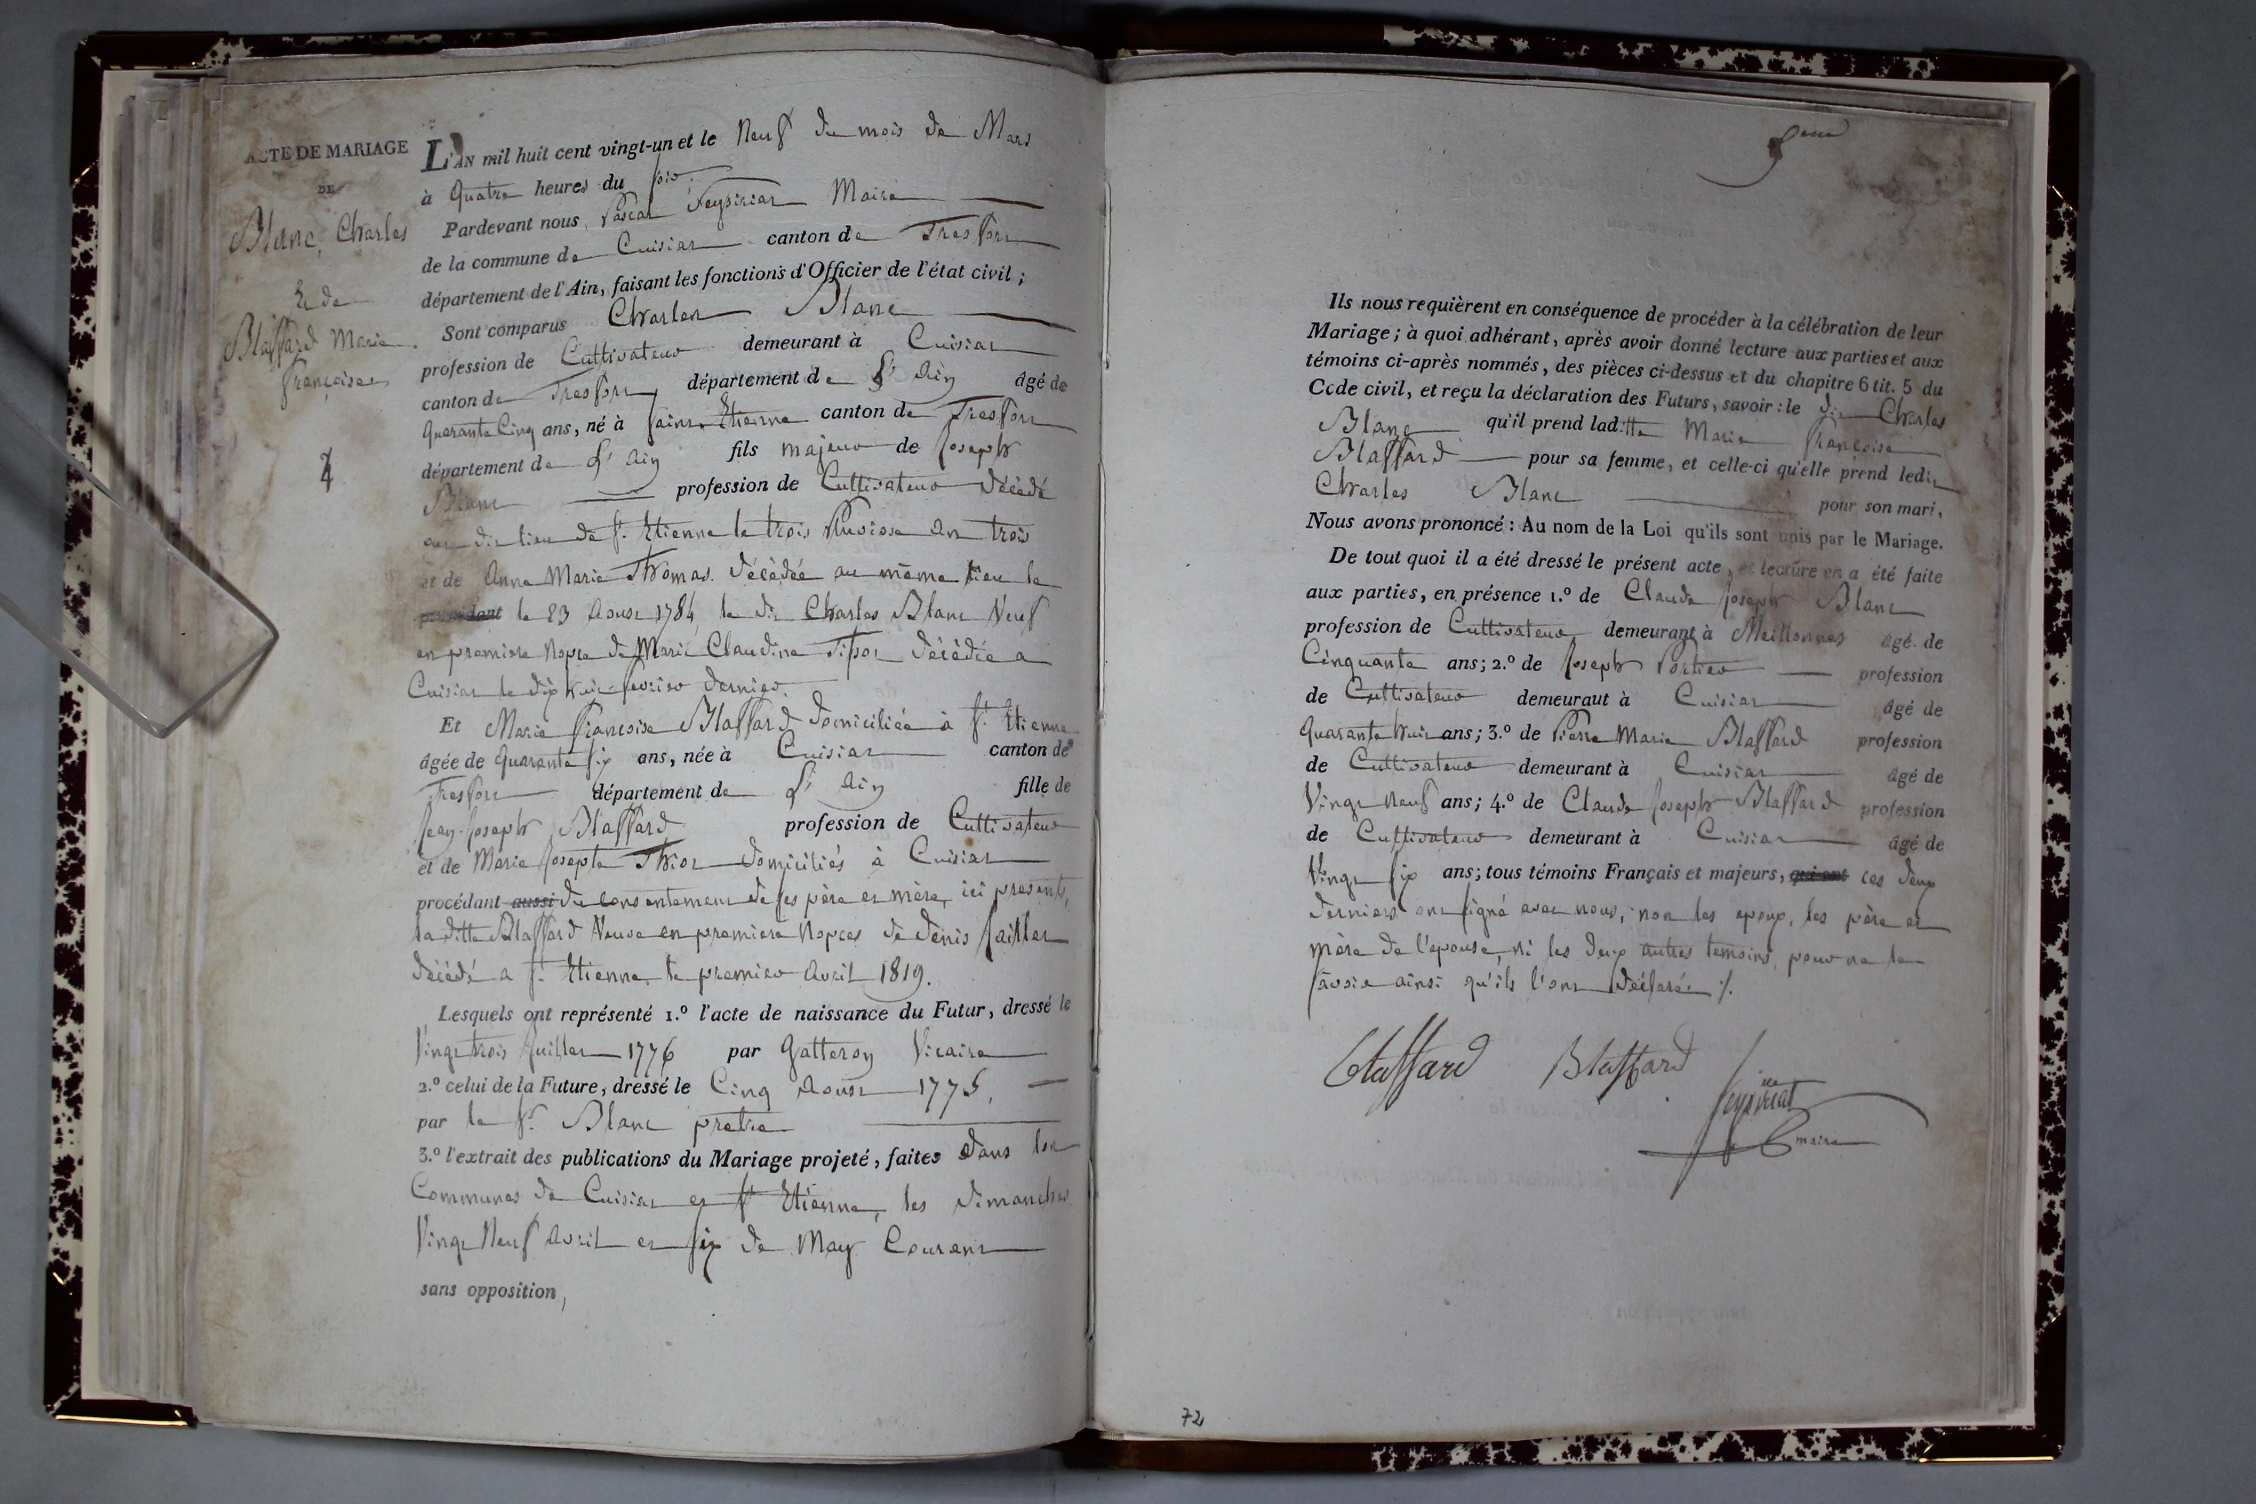 ACTE DE MARIAGE
DE
Blanc, Charles
Et de
Blaffard Marie
françoise
4
L'AN mil huit cent vingt-un et le Neuf du mois de Mars
à Quatre heures du soir.
Pardevant nous, Pascal Seyssiriat Maire
de la commune de Cuisiat canton de Treffort
département de l'Ain, faisant les fonctions d'Officier de l'état civil;
Sont comparus Charles Blanc
profession de Cultivateur demeurant à Cuisiat
canton de Treffort département de L'Ain âgé de
Quarante Cinq ans, né à Saint Etienne canton de Treffort
département de L'Ain fils majeur de Joseph
Blanc profession de Cultivateur décédé
au dit lieu de St. Etienne le trois Pluviose an trois
et de Anne Marie Thomas décédée au même lieu le
le 23 Aoust 1784, le dit Charles Blanc Veuf
en premiere Nopce de Marie Claudine Tissot décédée a
Cuisiat le dix huit fevrier dernier.
Et Marie françoise Blaffard domiciliée à St. Etienne
âgée de Quarante six ans, née à Cuisiat canton de
Treffort département de L'Ain fille de
Jean-Joseph Blaffard profession de Cultivateur
et de Marie Josepte Thiot domiciliés à Cuisiat
procédant aussi du consentement de ses père et mère, ici presents,
la ditte Blaffard Veuve en premiere Nopces de denis Jaillet
décédé a St. Etienne le premier Avril 1819.
Lesquels ont représenté 1.° l'acte de naissance du Futur, dressé le
Vingt trois Juillet 1776 par Gatteron Vicaire
2.° celui de la Future, dressé le Cinq Aoust 1775,
par le Sr. Blanc pretre
3.° l'extrait des publications du Mariage projeté, faites dans les
Communes de Cuisiat et St Etienne, les dimanches
Vingt Neuf Avril et six de May Courant
sans opposition,
Ils nous requièrent en conséquence de procéder à la célébration de leur
Mariage; à quoi adhérant, après avoir donné lecture aux parties et aux
témoins ci-après nommés, des pièces ci-dessus et du chapitre 6 tit. 5 du
Code civil, et reçu la déclaration des Futurs, savoir: le dit Charles
Blanc qu'il prend laditte Marie françoise
Blaffard pour sa femme, et celle-ci qu'elle prend ledit
Charles Blanc pour son mari,
Nous avons prononcé: Au nom de la Loi qu'ils sont unis par le Mariage.
De tout quoi il a été dressé le présent acte, et lecture en a été faite
aux parties, en présence 1.° de Claude Joseph Blanc
profession de Cultivateur demeurant à Meillonnas âgé de
Cinquante ans; 2.° de Joseph Portier profession
de Cultivateur demeuraut à Cuisiat âgé de
Quarante huit ans; 3.° de Pierre Marie Blaffard profession
de Cultivateur demeurant à Cuisiat âgé de
Vingt Neuf ans; 4.° de Claude Joseph Blaffard profession
de Cultivateur demeurant à Cuisiat âgé de
Vingt six ans; tous témoins Français et majeurs, qui ont ces deux
derniers ont signé avec nous, non les epoux, les père et
mère de l'epouse, ni les deux autres temoins, pour ne le
savoir ainsi qu'ils l'ont déclaré ./.
Blaffard Blaffard Seyssiriat
maire
72